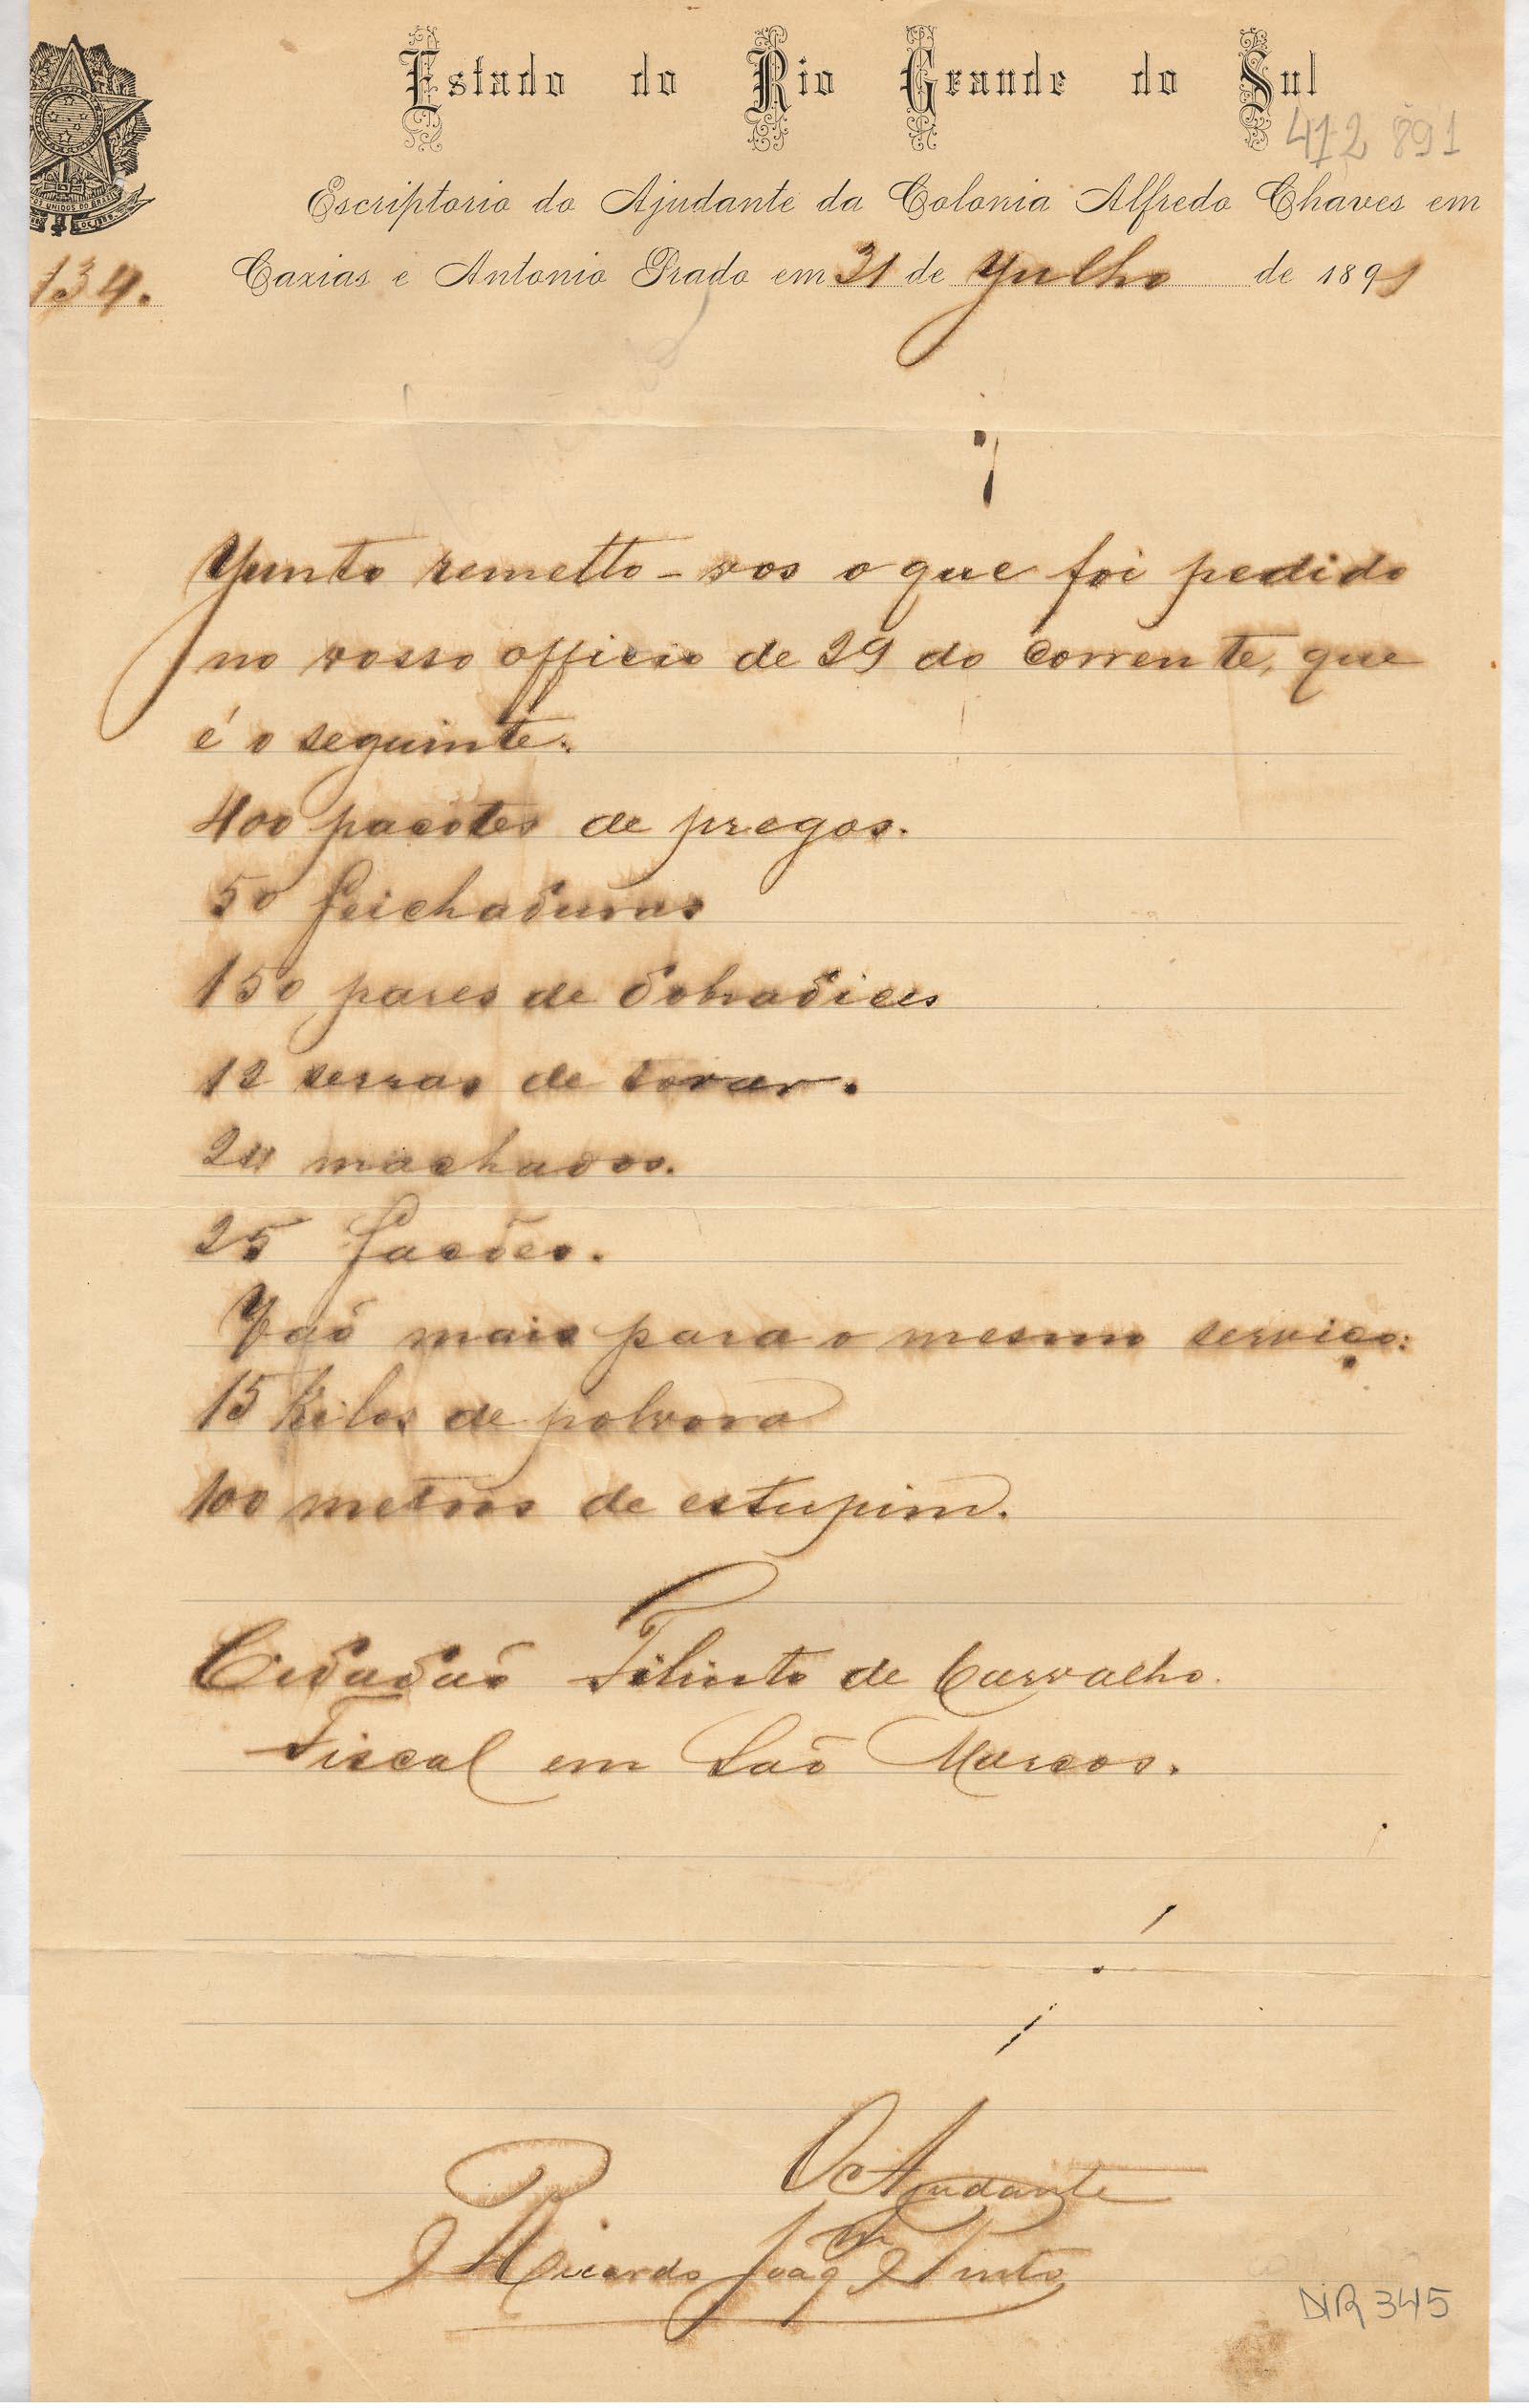 Estado do Rio Grande do Sul
412 891
Escriptorio do Ajudante da Colonia Alfredo Chaves em
134. Caxias e Antonio Prado em 31 de Julho de 1891
Junto remetto-vos o que foi pedido
no vosso officio de 29 do corrente, que
é o seguinte:
400 pacotes de pregos.
50 feichaduras
150 pares de dobradices
12 serras de torar.
24 machados.
25 facões.
Vaõ mais para o mesmo serviço:
15 kilos de polvora
100 metros de estupim.
Cidadaõ Filinto de Carvalho.
Fiscal em Saõ Marcos.
O Ajudante
Ricardo Joaqm Pinto
DIR 345